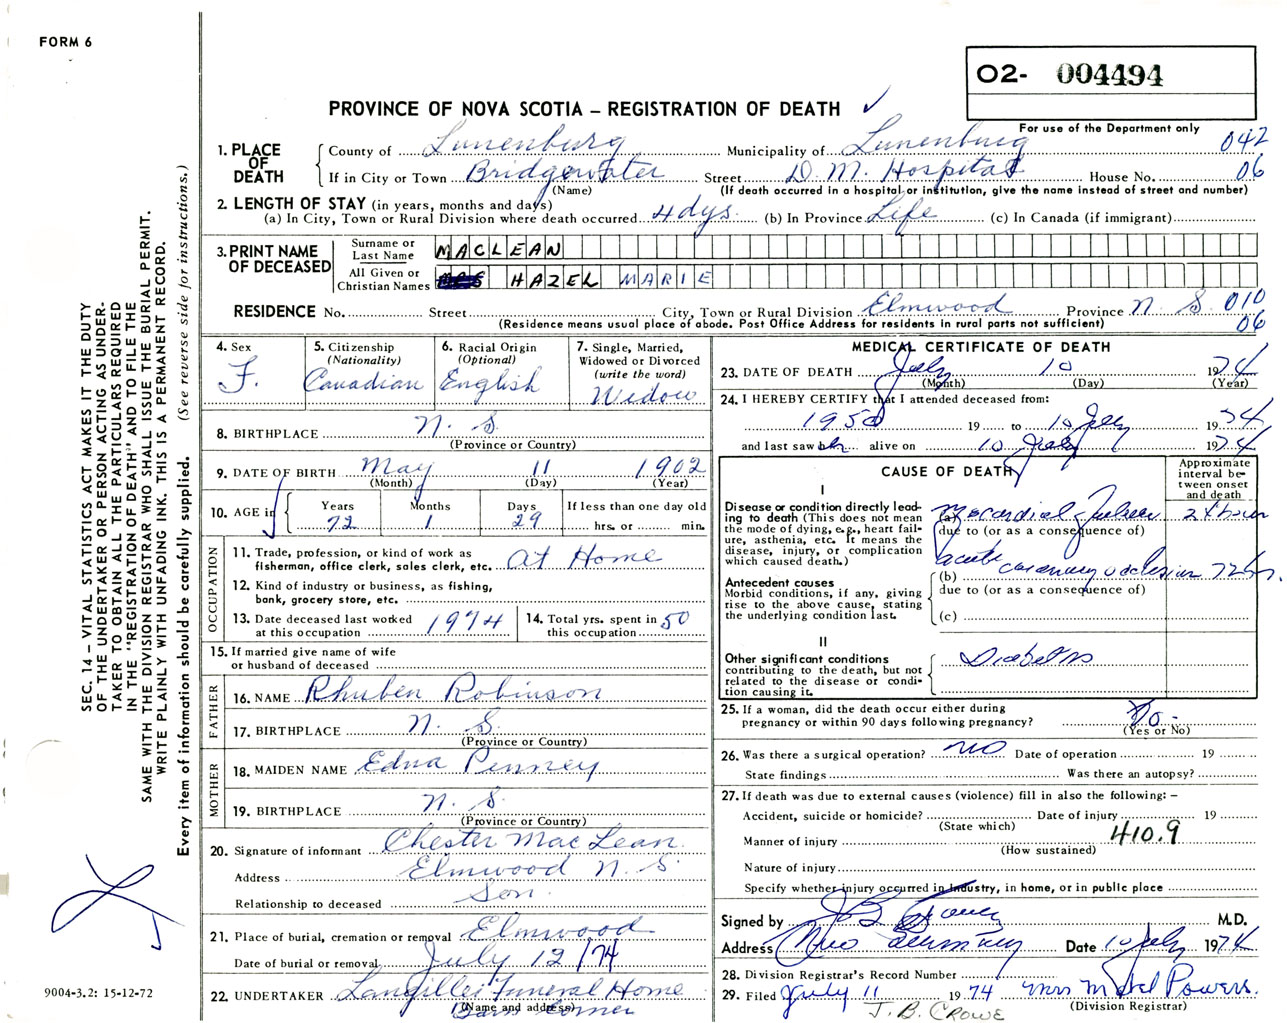 FORM 6
O2- 004494
PROVINCE OF NOVA SCOTIA – REGISTRATION OF DEATH ✓
For use of the Department only
1. PLACE OF DEATH
County of Lunenburg Municipality of Lunenburg 042
If in City or Town Bridgewater Street D. M. Hospital House No. 06
(Name) (If death occurred in a hospital or institution, give the name instead of street and number)
2. LENGTH OF STAY (in years, months and days)
(a) In City, Town or Rural Division where death occurred 4 dys. (b) In Province Life (c) In Canada (if immigrant)
3. PRINT NAME OF DECEASED
Surname or Last Name MACLEAN
All Given or Christian Names HAZEL MARIE
RESIDENCE No. Street City, Town or Rural Division Elmwood Province N. S. 010
(Residence means usual place of abode. Post Office Address for residents in rural parts not sufficient) 06
4. Sex
F.
5. Citizenship
(Nationality)
Canadian
6. Racial Origin
(Optional)
English
7. Single, Married,
Widowed or Divorced
(write the word)
Widow
8. BIRTHPLACE N. S.
(Province or Country)
9. DATE OF BIRTH May 11 1902
(Month) (Day) (Year)
10. AGE in
Years 72
Months 1
Days 29
If less than one day old
hrs. or min.
OCCUPATION
11. Trade, profession, or kind of work as
fisherman, office clerk, sales clerk, etc. At Home
12. Kind of industry or business, as fishing,
bank, grocery store, etc.
13. Date deceased last worked
at this occupation 1974
14. Total yrs. spent in
this occupation 50
15. If married give name of wife
or husband of deceased
FATHER
16. NAME Rhuben Robinson
17. BIRTHPLACE N. S.
(Province or Country)
MOTHER
18. MAIDEN NAME Edna Penney
19. BIRTHPLACE N. S.
(Province or Country)
20. Signature of informant Chester MacLean
Address Elmwood N. S
Relationship to deceased Son.
21. Place of burial, cremation or removal Elmwood
Date of burial or removal July 12/74
22. UNDERTAKER Langilles Funeral Home
(Name and address) Corner
MEDICAL CERTIFICATE OF DEATH
23. DATE OF DEATH July 10 1974
(Month) (Day) (Year)
24. I HEREBY CERTIFY that I attended deceased from:
1950 19 to 10 July 1974
and last saw her alive on 10 July 1974
CAUSE OF DEATH
Approximate
interval be-
tween onset
and death
I
Disease or condition directly lead-
ing to death (This does not mean
the mode of dying, e.g., heart fail-
ure, asthenia, etc. It means the
disease, injury, or complication
which caused death.)
(a) Myocardial Failure 24 hour
due to (or as a consequence of)
Antecedent causes
Morbid conditions, if any, giving
rise to the above cause, stating
the underlying condition last.
(b) acute coronary occlusion 72 hr.
due to (or as a consequence of)
(c)
II
Other significant conditions
contributing to the death, but not
related to the disease or condi-
tion causing it.
Diabetes
25. If a woman, did the death occur either during
pregnancy or within 90 days following pregnancy? No -
(Yes or No)
26. Was there a surgical operation? no Date of operation 19
State findings Was there an autopsy?
27. If death was due to external causes (violence) fill in also the following: –
Accident, suicide or homicide? Date of injury 19
(State which)
Manner of injury 410.9
(How sustained)
Nature of injury
Specify whether injury occurred in industry, in home, or in public place
Signed by M.D.
Address New Germany Date 10 July 1974
28. Division Registrar's Record Number
29. Filed July 11 1974 Mrs Powers.
(Division Registrar)
J. B. CROWE
SEC. 14 – VITAL STATISTICS ACT MAKES IT THE DUTY
OF THE UNDERTAKER OR PERSON ACTING AS UNDER-
TAKER TO OBTAIN ALL THE PARTICULARS REQUIRED
IN THE "REGISTRATION OF DEATH" AND TO FILE THE
SAME WITH THE DIVISION REGISTRAR WHO SHALL ISSUE THE BURIAL PERMIT.
WRITE PLAINLY WITH UNFADING INK. THIS IS A PERMANENT RECORD.
Every item of information should be carefully supplied. (See reverse side for instructions.)
9004-3.2: 15-12-72